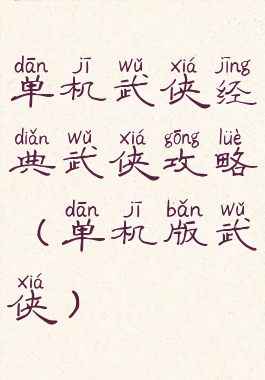 dān jī wǔ xiá jīng
单机武侠经
diǎn wǔ xiá gōng lüè
典武侠攻略
dān jī bǎn wǔ
（单机版武
xiá
侠）